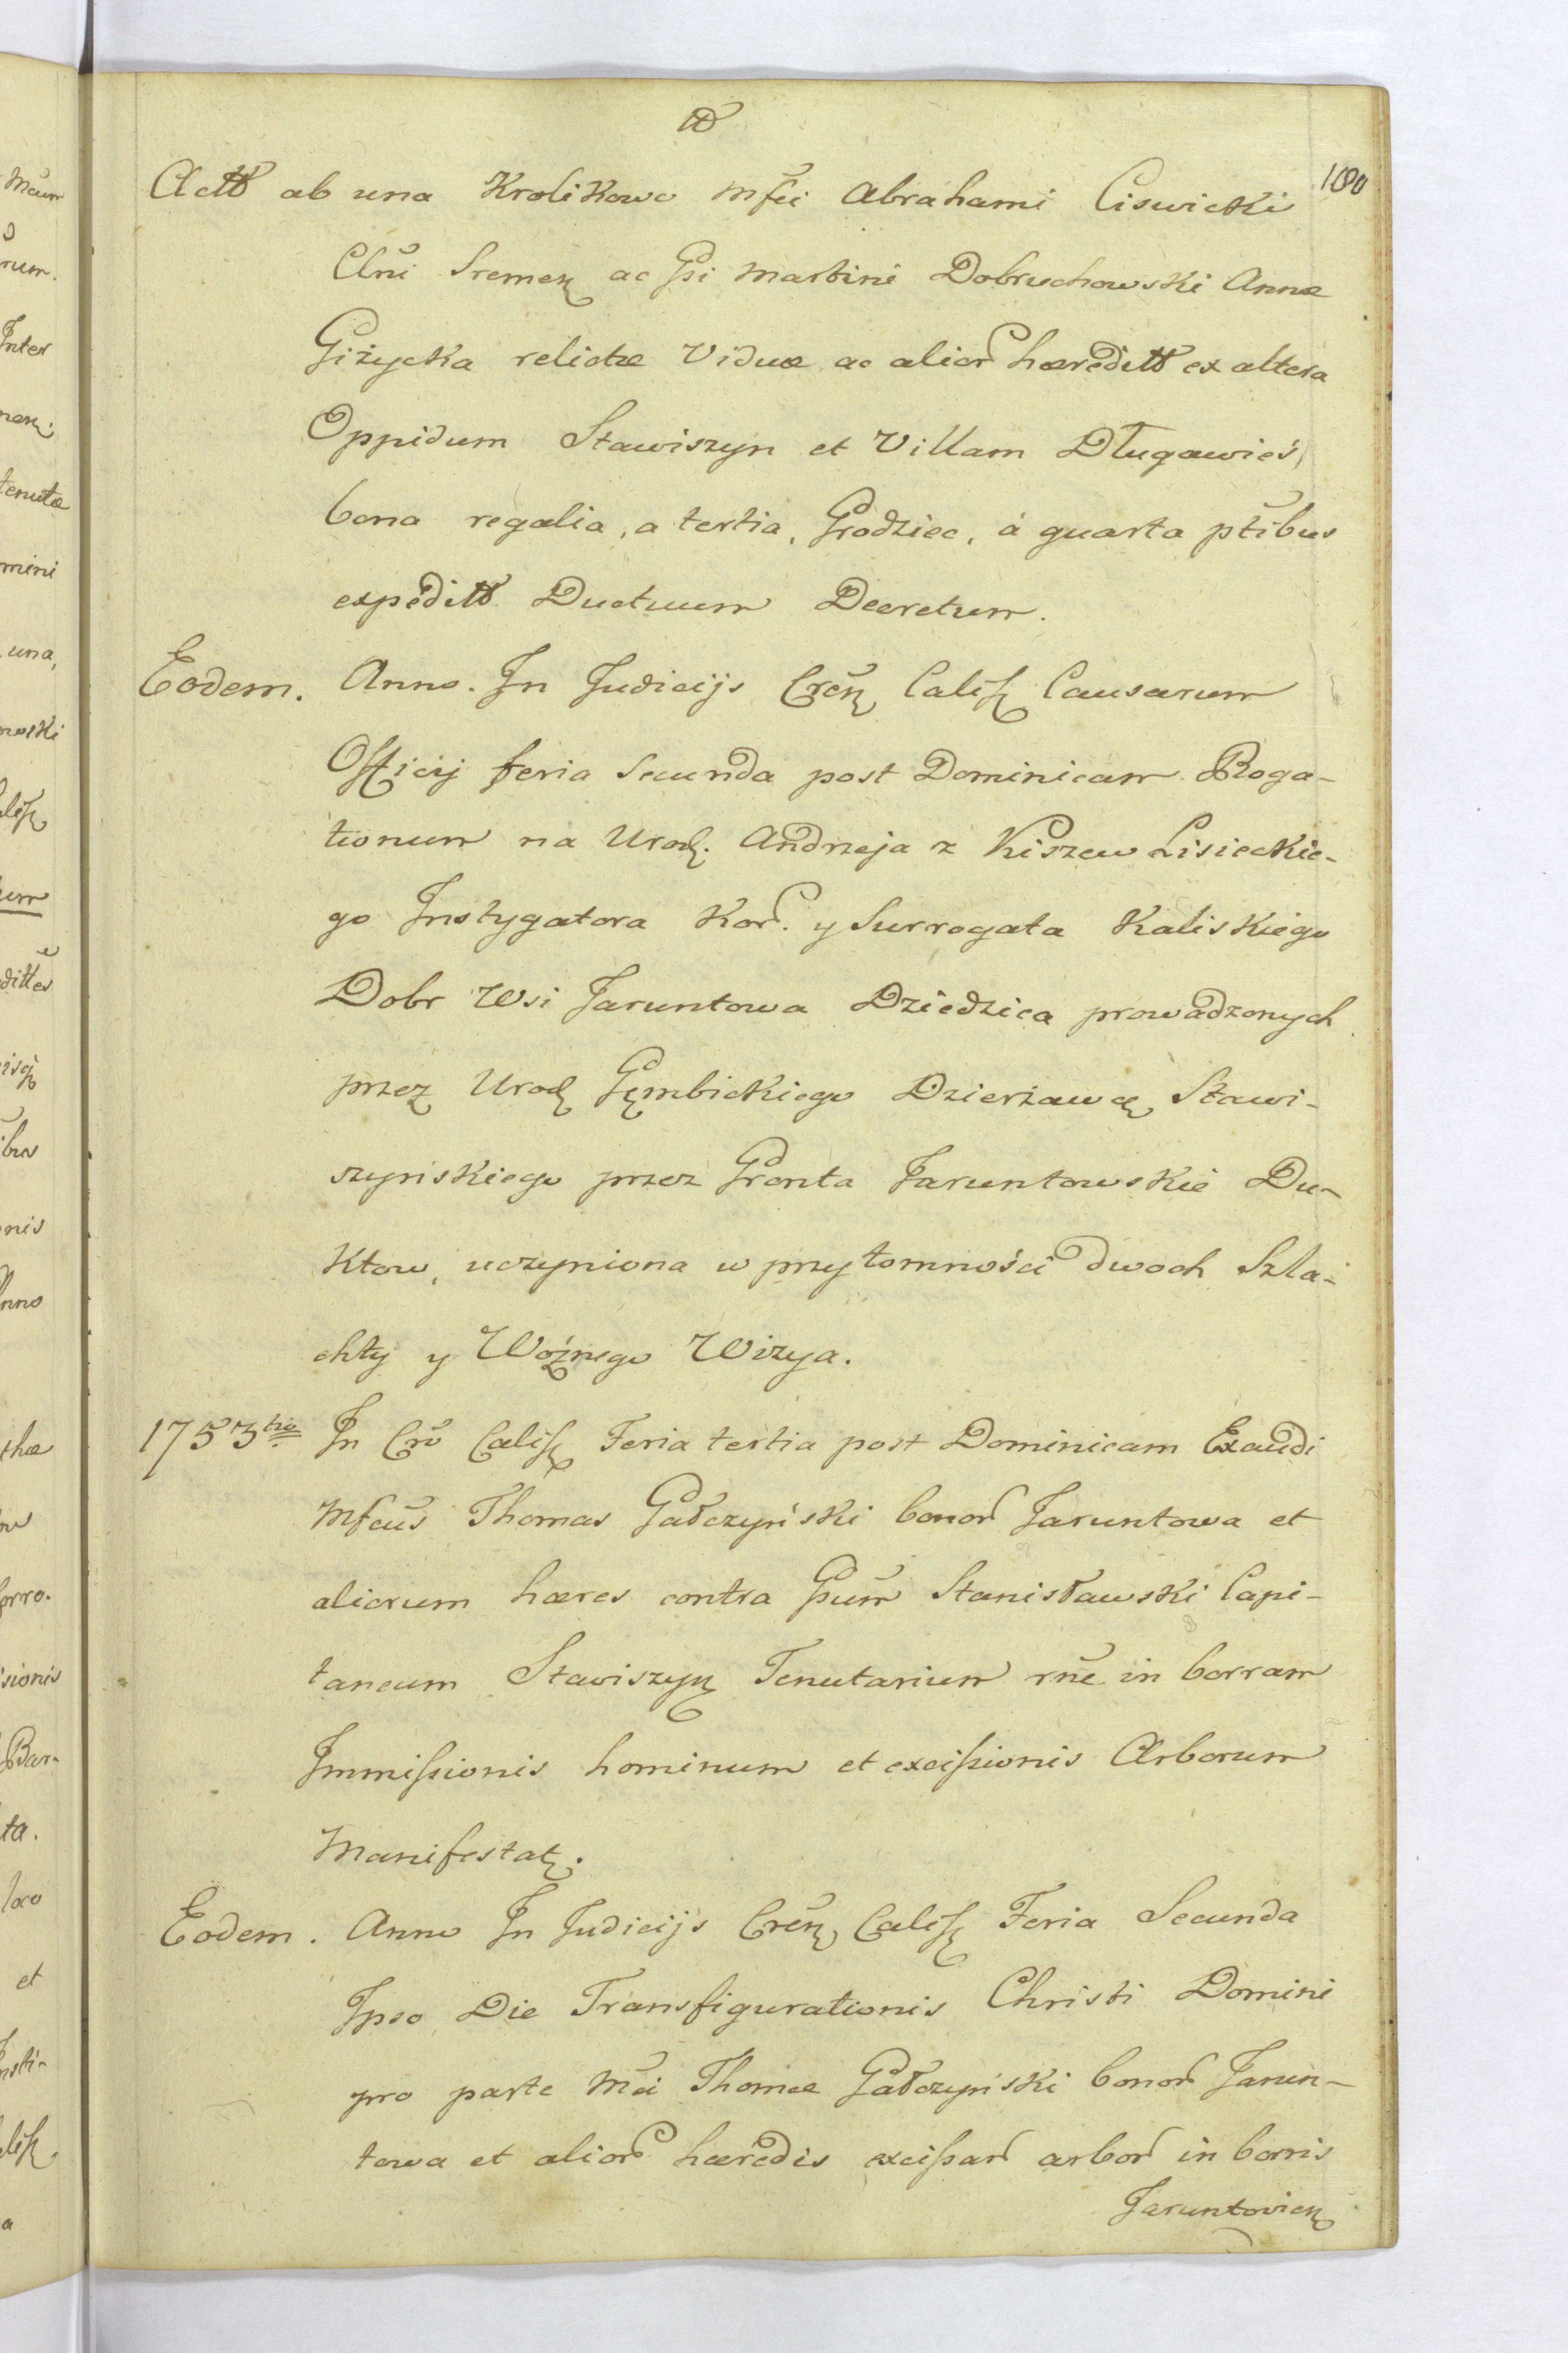 100
Actt ab una Krolikowo Mfci Abrahami Ciswicki
Clni Sremen ac Gsi Martini Dobruchowski Annæ
Giżycka relictæ Viduæ ac alior hæreditt ex altera
Oppidum Stawiszyn et Villam Długawieś
bona regalia, a tertia, Grodziec, à quarta ptibus
expeditt Ductuum Decretum.
Eodem. Anno. In Judicijs Cren Calis Causarum
Officij feria secunda post Dominicam Roga-
tionum na Urod. Andrzeja z Kiszew Lisieckie-
go Instygatora Kor. y Surrogata Kaliskiego
Dobr Wsi Jaruntowa Dziedzica prowadzonych
przez Urod Gęmbickiego Dzierżawcę Stawi-
szynskiego przez Gronta Jaruntowskie Du-
ktow, uczyniona w przytomności dwoch Szla-
chty y Woźnego Wizya.
1753tio In Cro Calis Feria tertia post Dominicam Exaudi
Mfcus Thomas Gałczyński bonor Jaruntowa et
aliorum hæres contra Gsum Stanisławski Capi-
taneum Stawiszyn Tenutarium rne in borram
Immissionis hominum et excissionis Arborum
Manifestat.
Eodem. Anno In Judicijs Cren Calis Feria Secunda
Ipso Die Transfigurationis Christi Domini
pro parte Mci Thomæ Gałczyński bonor Jarun-
towa et alior hæredis excissar arbor in borris
Jaruntovien